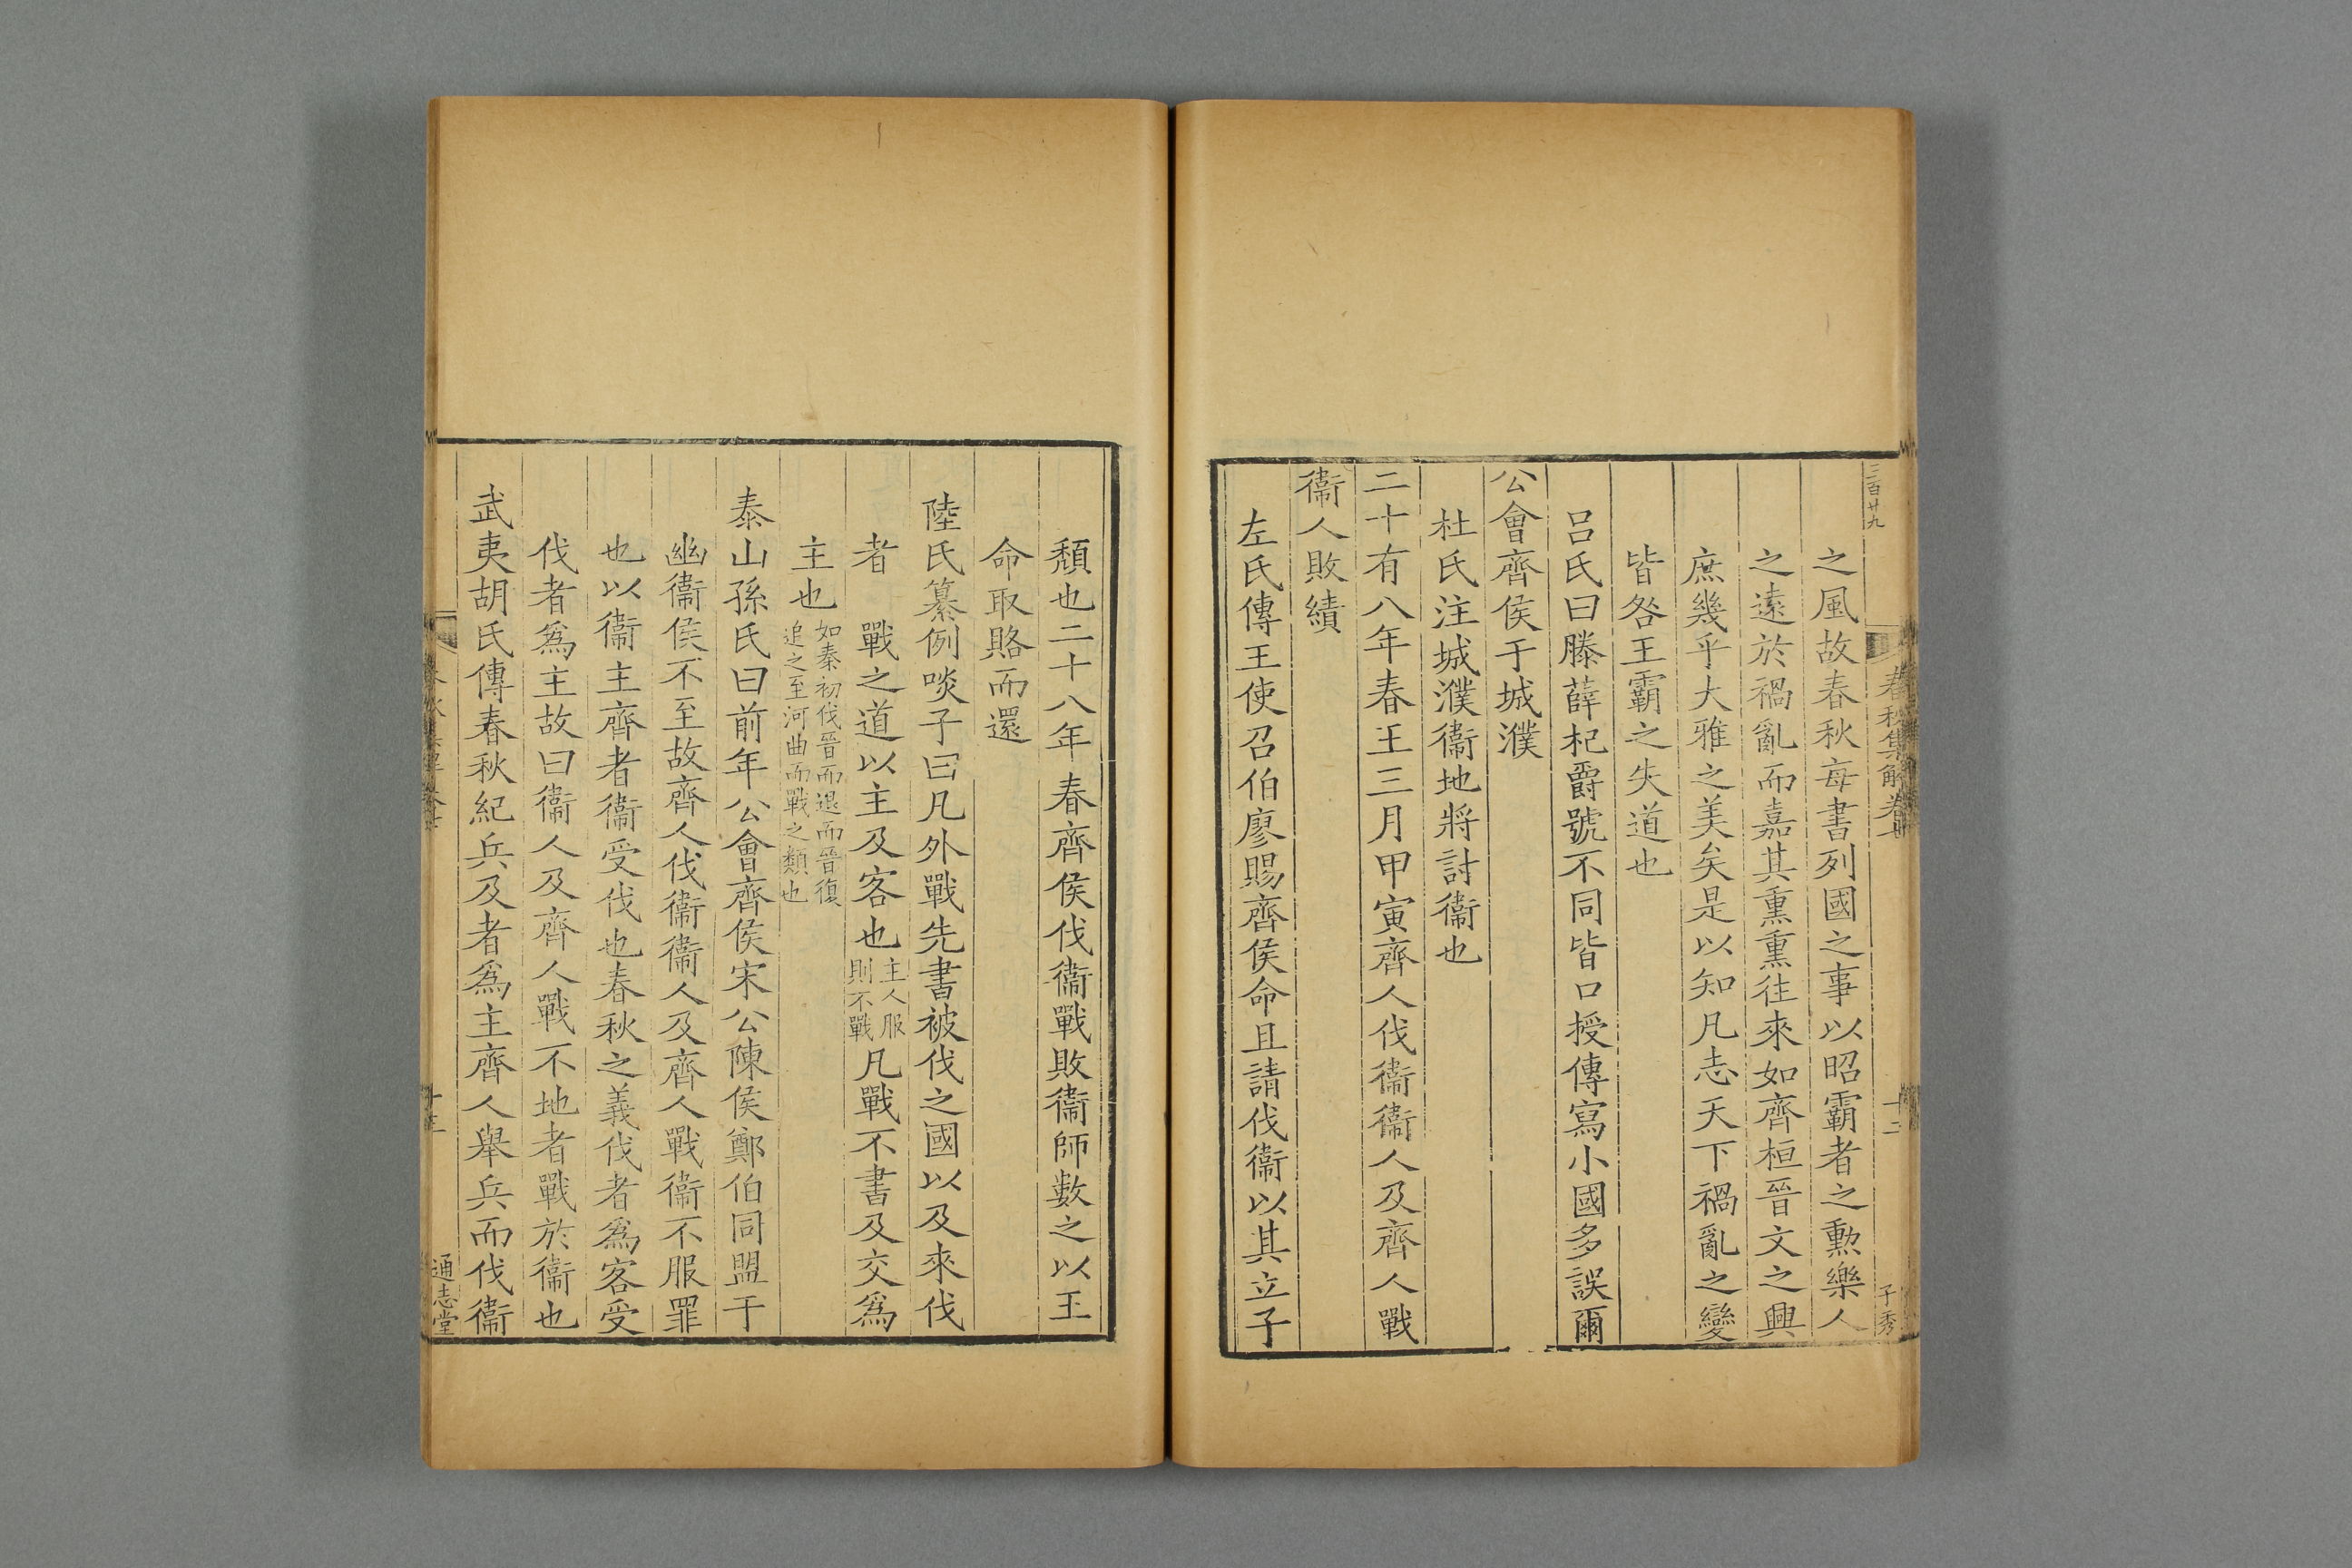 三百廿九
春秋集解卷七
十二
子秀
之風故春秋每書列國之事以昭霸者之勲樂人
之遠於禍亂而嘉其熏熏往來如齊桓晉文之興
庶幾乎大雅之美矣是以知凡志天下禍亂之變
皆咎王霸之失道也
吕氏曰滕薛杞爵號不同皆口授傳寫小國多誤爾
公會齊侯于城濮
杜氏注城濮衞地將討衞也
二十有八年春王三月甲寅齊人伐衞衞人及齊人戰
衞人敗績
左氏傳王使召伯廖賜齊侯命且請伐衞以其立子
頹也二十八年春齊侯伐衞戰敗衞師數之以王
命取賂而還
陸氏纂例啖子曰凡外戰先書被伐之國以及來伐
者 戰之道以主及客也主人服則不戰凡戰不書及交爲
主也如秦初伐晉而退而晉復追之至河曲而戰之類也
泰山孫氏曰前年公會齊侯宋公陳侯鄭伯同盟于
幽衞侯不至故齊人伐衞衞人及齊人戰衞不服罪
也以衞主齊者衞受伐也春秋之義伐者爲客受
伐者爲主故曰衞人及齊人戰不地者戰於衞也
武夷胡氏傳春秋紀兵及者爲主齊人舉兵而伐衞
通志堂